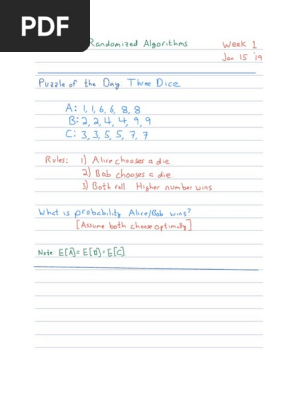 PDF
Randomized Algorithms
Week 1
Jan 15 '19
Puzzle of the Day Three Dice
A: 1, 1, 6, 6, 8, 8
B: 2, 2, 4, 4, 9, 9
C: 3, 3, 5, 5, 7, 7
Rules: 1) Alice chooses a die
2) Bob chooses a die
3) Both roll Higher number wins
What is probability Alice/Bob wins?
[Assume both choose optimally]
Note E[A] = E[B] = E[C]